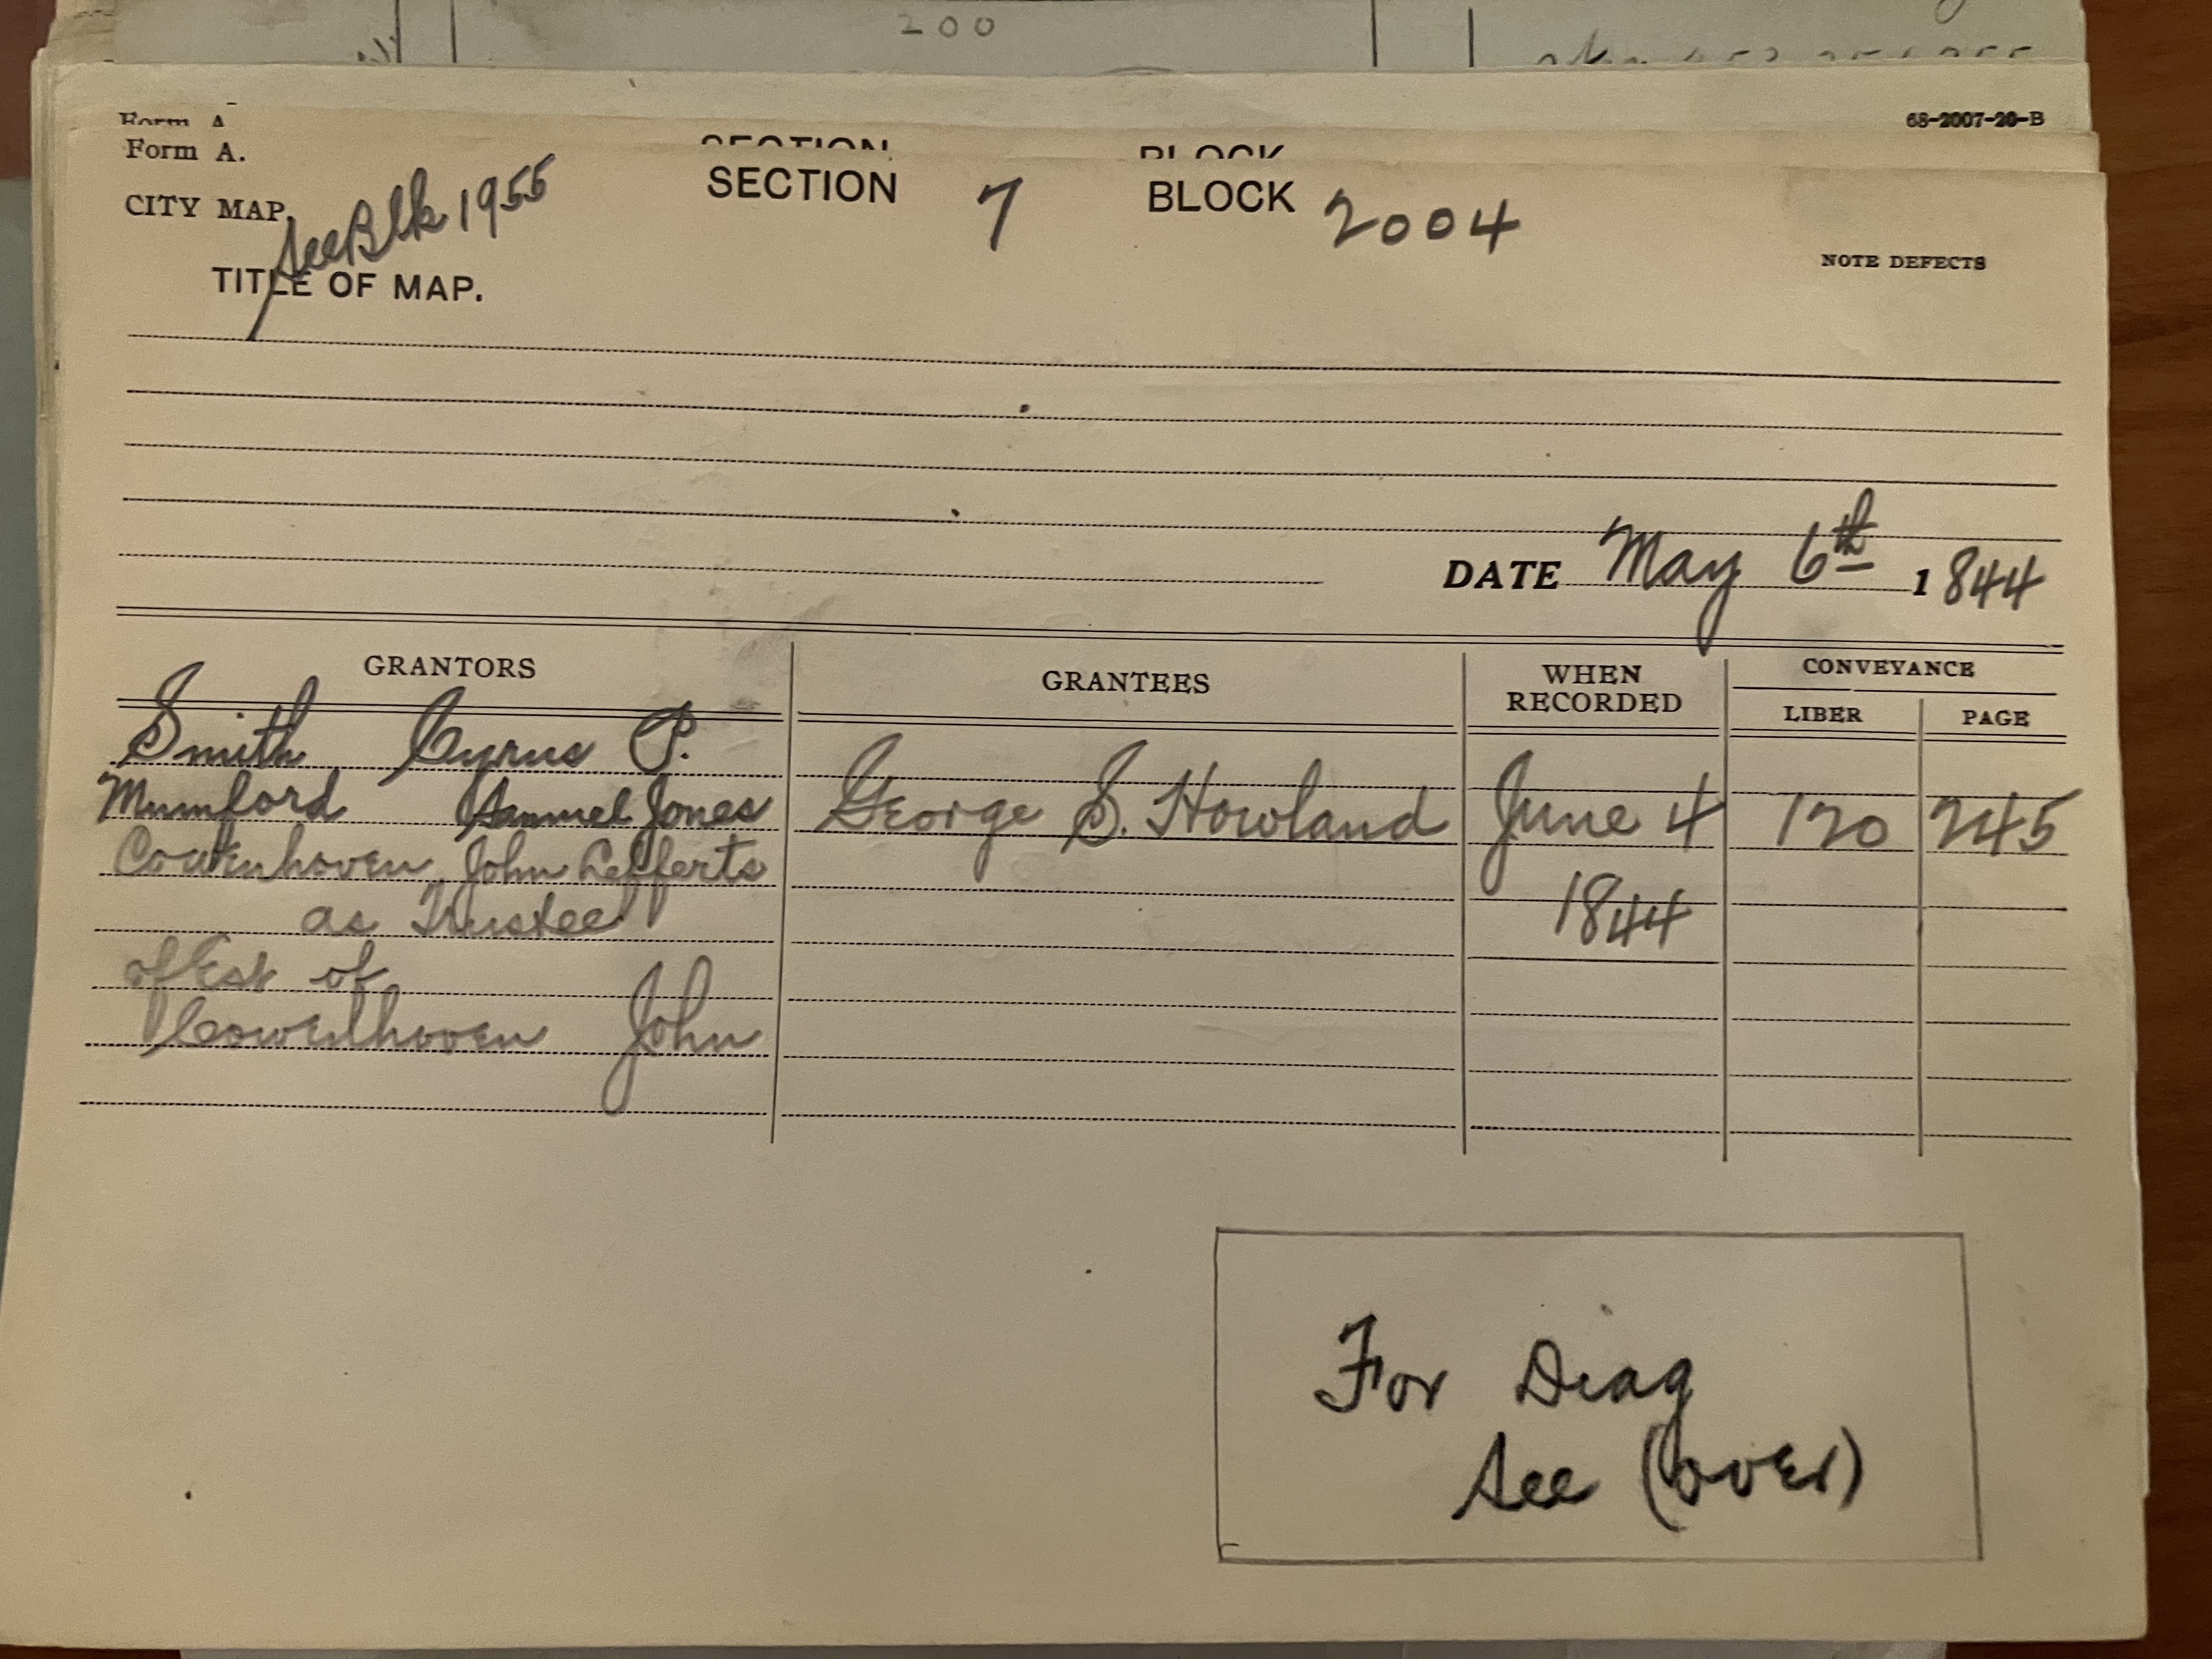 200
Form A
68-2007-20-B
SECTION BLOCK
Form A.
CITY MAP. See Blk 1955 SECTION 7 BLOCK 2004
NOTE DEFECTS
TITLE OF MAP.
DATE May 6th 1844
GRANTORS GRANTEES WHEN RECORDED CONVEYANCE
LIBER PAGE
Smith Cyrus P.
Mumford Samuel Jones George S. Howland June 4 120 245
Cowenhoven John Lefferts
as Trustee 1844
of Est of
Cowenhoven John
For Diag
See (over)